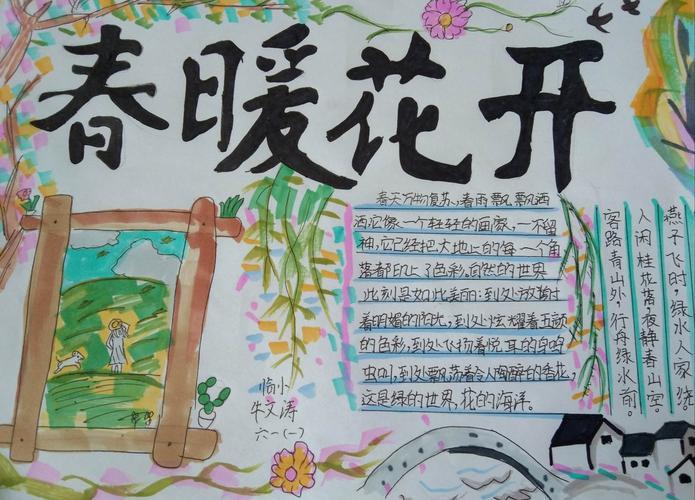 春暖花开
春天万物复苏,春雨飘飘洒
洒,它像一个轻轻的画家,一不留
神,它已经把大地上的每一个角
落都印上了色彩,自然的世界
此刻是如此美丽:到处放射着
着明媚的阳光,到处炫耀着五颜
的色彩,到处飞扬着悦耳的鸟鸣
虫叫,到处飘荡着令人陶醉的香花,
这是绿的世界,花的海洋。
燕子飞时,绿水人家绕。
人闲桂花落,夜静春山空
客路青山外,行舟绿水前。
临小
牛文涛
六一(一)